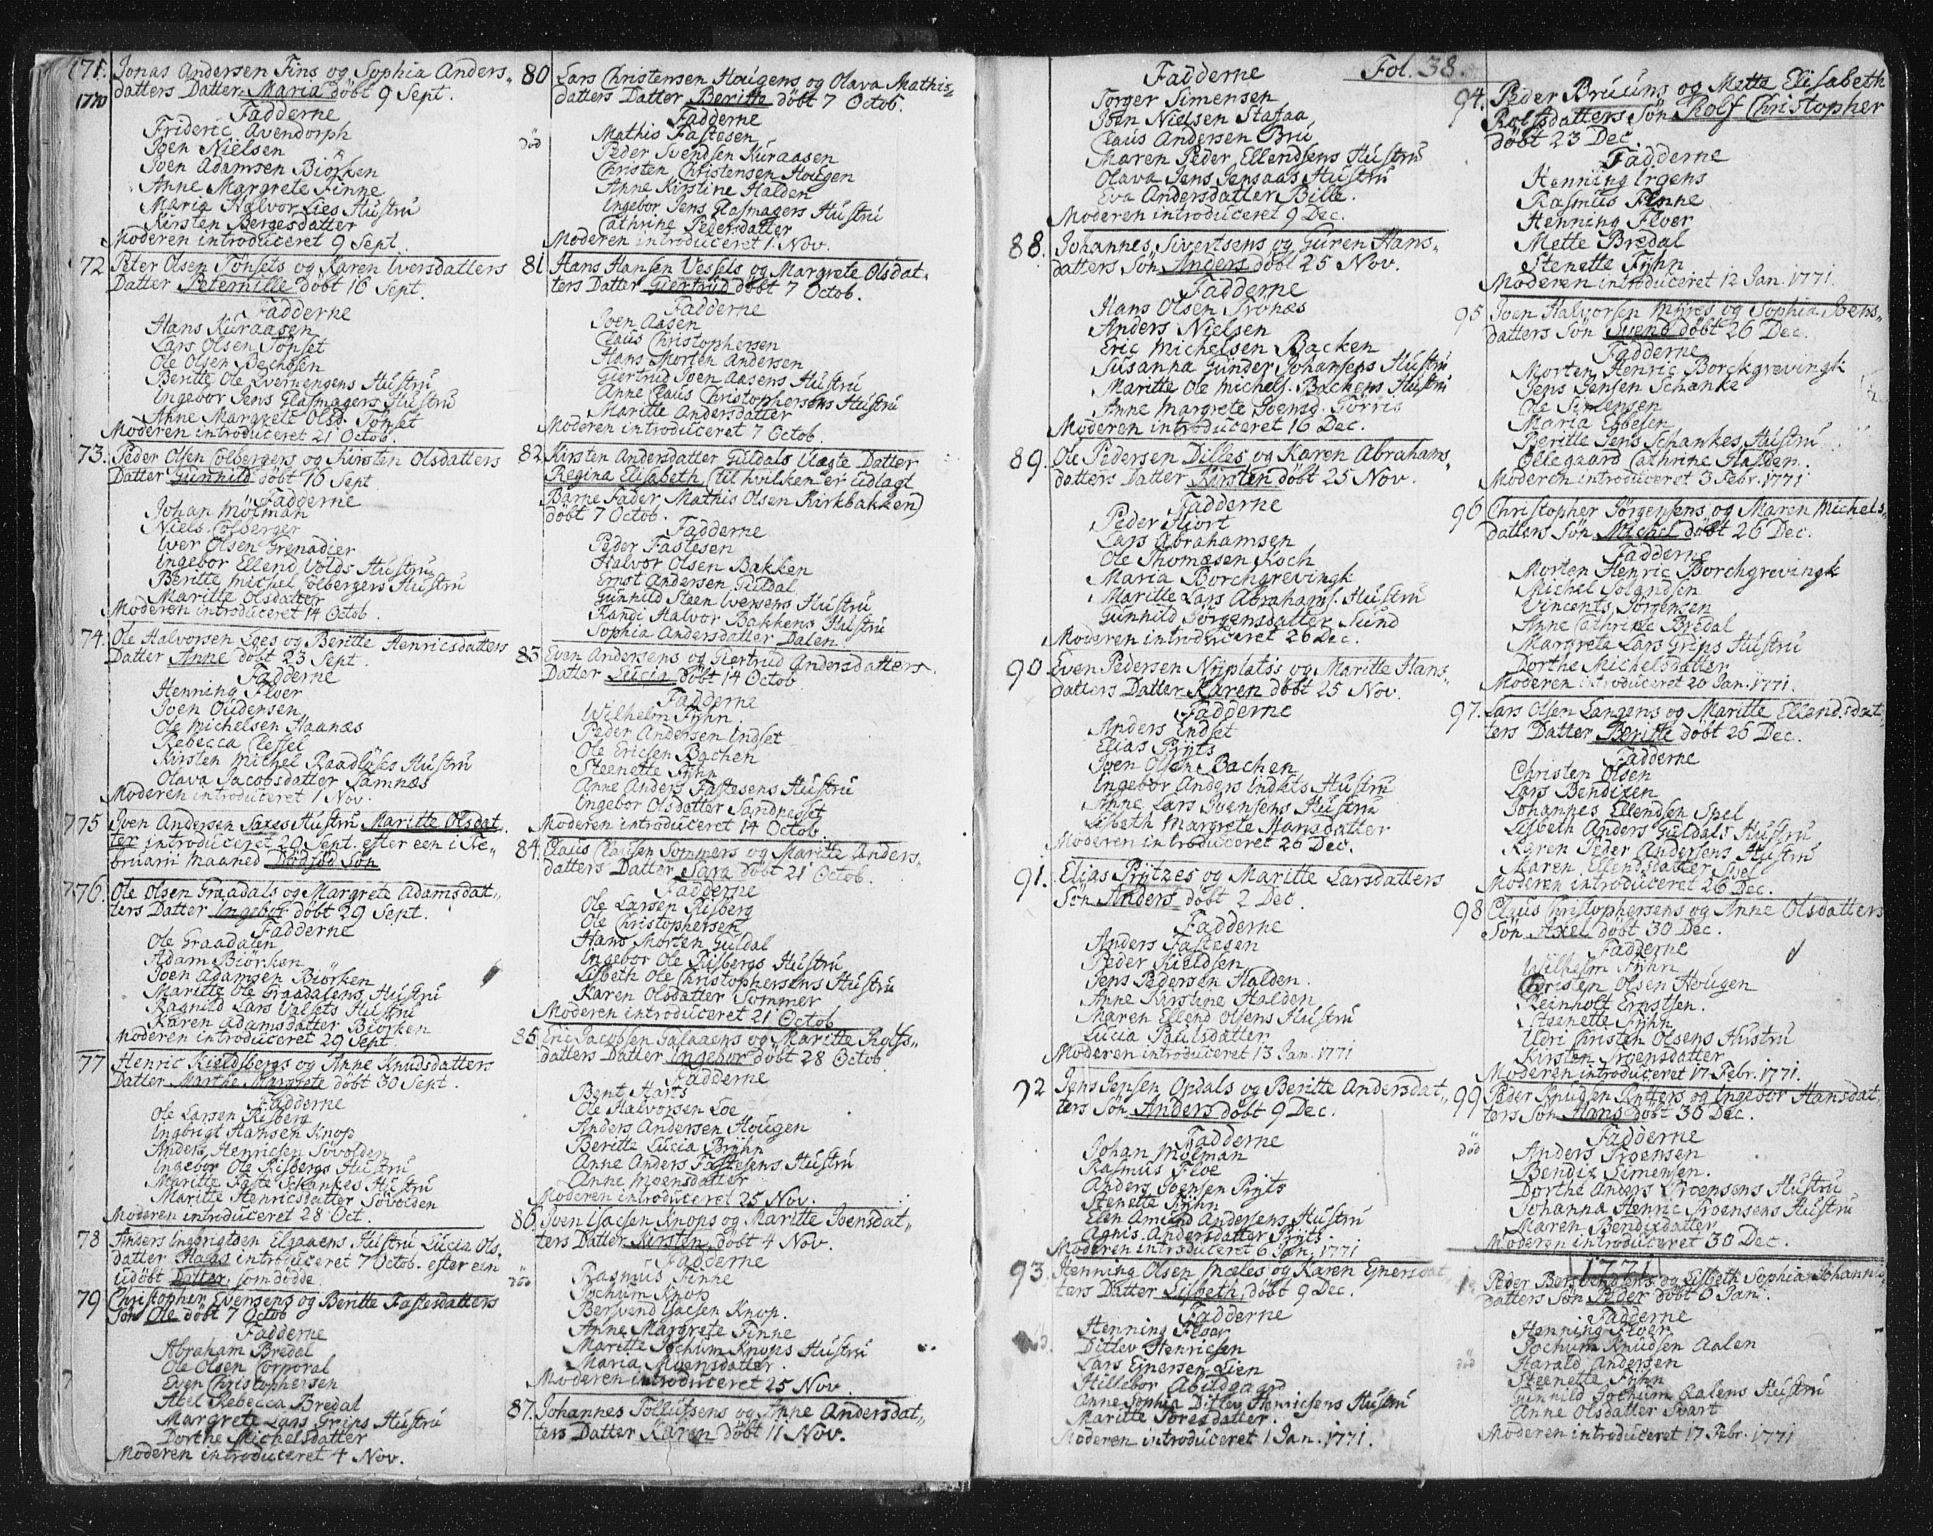 171. Jonas Andersen Fins og Sophia Anders-
1770 datters Datter Maria döbt 9 Sept.
Fadderne
Frideric Avendorph
Joen Nielsen
Joen Adamsen Biörken
Anne Margrete Finne
Maria Halvor Lies Hustru
Kirsten Bergesdatter
Moderen introduceret 9 Sept.
72 Peter Olsen Tönsets og Karen Iversdatters
Datter Peternille döbt 16 Sept.
Fadderne
Hans Kuraasen
Lars Olsen Tönset
Ole Olsen Bechosen
Beritte Ole Evernengens Hustru
Ingebor Jens Glasmagers Hustru
Anne Margrete Olsd. Tönset
Moderen introduceret 21 Octob.
73. Peder Olsen Colbergers og Kirsten Olsdatters
Datter Gunnild döbt 16 Sept.
Fadderne
Johan Mölman
Niels Colberger
Iver Olsen Grenadier
Ingebor Ellend Volds Hustru
Beritte Michel Colbergers Hustru
Maritte Olsdatter
Moderen introduceret 14 Octob.
74. Ole Halvorsen Loes og Beritte Henricsdatters
Datter Anne döbt 23 Sept.
Fadderne
Henning Floer
Joen Oudensen
Ole Michelsen Haanæs
Rebecca Clessel
Kirsten Michel Raadlöses Hustru
Olava Jacobsdatter Ramnæs
Moderen introduceret 1 Nov.
775 Joen Andersen Saxes Hustru Maritte Olsdat-
ter introduceret 29 Sept. efter een i Fe-
bruarii Maaned Dödfød Søn
776. Ole Olsen Graadals og Margrete Adamsdat-
ters Datter Ingebor döbt 29 Sept.
Fadderne
Ole Graadalen
Adam Biörken
Joen Adamsen Biörken
Maritte Ole Graadalens Hustru
Ragnild Lars Valsets Hustru
Karen Adamsdatter Biörken
Moderen introduceret 29 Sept.
77 Henric Kieldsbergs og Anne Knudsdatters
Datter Marthe Margrete döbt 30 Sept.
Fadderne
Ole Larsen Risberg
Ingbrigt Hansen Knop
Anders Henricsen Sövolden
Ingebor Ole Risbergs Hustru
Maritte Faste Schankes Hustru
Maritte Henricsdatter Sövolden
Moderen introduceret 28 Oct.
78 Anders Ingbrigtsen Elgaaens Hustru Lucia Ols-
datter Haans introduceret 7 Octob. efter ein
udöbt Datter som dödde.
79 Christopher Evensens og Beritte Fastesdatters
Søn Ole döbt 7 Octob
Fadderne
Abraham Bredal
Ole Olsen Corporal
Even Christophersen
Abel Rebecca Bredal
Margrete Lars Grins Hustru
Dorthe Michelsdatter
Moderen introduceret 4 Nov.
80 Lars Christensen Hougens og Olava Mathis-
datters Datter Beritte döbt 7 Octob.
Fadderne
död Mathis Fastesen
Peder Svendsen Kuraasen
Christen Christensen Hougen
Anne Kirstine Halden
Ingebor Jens Glasmagers Hustru
Cathrine Pedersdatter
Moderen introduceret 1 Nov.
81 Hans Hansen Vessels og Margrete Olsdat-
ters Datter Giertrud döbt 7 Octob.
Fadderne
Joen Aasen
Claus Christophersen
Hans Morten Andersen
Giertrud Joen Aasens Hustru
Anne Claus Christophersens Hustru
Maritte Andersdatter
Moderen introduceret 7 Octob.
82 Kirsten Andersdatter Guldals Uægte Datter
Regina Elisabeth (til hvilken er udlagt
Barne Fader Mathis Olsen Kirkbakken)
döbt 7 Octob.
Fadderne
Peder Fastesen
Halvor Olsen Bakken
Ernst Andersen Guldal
Gunnild Steen Iversens Hustru
Randi Halvor Bakkens Hustru
Sophia Andersdatter Dalen
83 Even Andersens og Giertrud Andersdatters
Datter Lucia döbt 14 Octob
Fadderne
Wilhelm Fyhn
Peder Andersen Indset
Ole Ericsen Bachen
Steenette Fyhn
Anne Anders Fastesens Hustru
Ingebor Olsdatter Sandnesset
Moderen introduceret 14 Octob.
84. Claus Clausen Sommers og Maritte Anders-
datters Datter Sara döbt 21 Octob.
Fadderne
Ole Larsen Risberg
Ole Christophersen
Hans Morten Guldal
Ingebor Ole Risbergs Hustru
Lisbeth Ole Christophersens Hustru
Karen Olsdatter Sommer
Moderen introduceret 21 Octob
85. Eric Jacobsen Galaaens og Maritte Rolfs-
datters Datter Ingebor döbt 28 Octob
Fadderne
Bent Harts
Ole Halvorsen Loe
Anders Andersen Hougen
Beritte Lucia Bryhn
Anne Anders Fastesens Hustru
Anne Moensdatter
Moderen introduceret 25 Nov.
86. Joen Isacsen Knops og Maritte Joensdat-
ters Datter Kirsten döbt 4 Nov.
Fadderne
död Rasmus Finne
Jochum Knop
Bersvend Isacsen Knop.
Anne Margrete Finne
Maritte Jochum Knops Hustru
Maria Moensdatter
Moderen introduceret 25 Nov.
87. Johannes Tollufsens og Anne Andersdat-
ters Datter Karen döbt 11 Nov.
Fol. 38.
Fadderne
Torger Simensen
Joen Nielsen Stafaa
Claus Andersen Bru
Maren Peder Ellendsens Hustru
Olava Jens Jensaas Hustru
Eva Andersdatter Bille.
Moderen introduceret 9 Dec.
88. Johannes Sivertsens og Guren Hans-
datters Søn Anders döbt 25 Nov.
Fadderne
Hans Olsen Tronæs
Anders Nielsen
Eric Michelsen Backen
Susanna Gunder Johansens Hustru
Maritte Ole Michels. Backens Hustru
Anne Margrete Joensd. Torris
Moderen introduceret 16 Dec.
89. Ole Pedersen Dilles og Karen Abrahams-
datters Datter Kirsten döbt 25 Nov.
Fadderne
Peder Hiort
Lars Abrahamsen
Ole Thomæsen Koch
Maria Borchgrevingk
Maritte Lars Abrahams. Hustru
Gunnild Jörgensdatter Sund
Moderen introduceret 26 Dec.
90 Even Pedersen Nyplats's og Maritte Hans-
datters Datter Karen döbt 25 Nov.
Fadderne
Anders Indset
Elias Pryts
Joen Olsen Bachen
Ingebor Anders Indsets Hustru
Anne Lars Joensens Hustru
Lisbeth Margrete Hansdatter
Moderen introduceret 26 Dec.
91. Elias Prytzes og Maritte Larsdatters
Søn Anders döbt 2 Dec.
Fadderne
Anders Fastesen
Peder Kieldsen
Jens Pedersen Halden.
Anne Kirstine Halden
Maren Ellend Olsens Hustru
Lucia Paulsdatter
Moderen introduceret 13 Jan. 1771
92 Jens Jensen Opdals og Beritte Andersdat-
ters Søn Anders döbt 9 Dec.
Fadderne
Johan Mölman
Rasmus Floe
Anders Joensen Pryts
Stenette Fyhn
Elen Amund Andersens Hustru
Agnis Andersdatter Pryts
Moderen introduceret 6 Jan. 1771
93. Henning Olsen Inæles og Karen Einersdat-
ters Datter Lisbeth döbt 9 Dec.
Fadderne
Henning Floer
Ditlev Henricsen
Lars Einersen Lien
Hillebor Abildgaard
Anne Sophia Ditlev Henricsens Hustru
Maritte Toresdatter.
Moderen introduceret 1 Jan. 1771.
94. Peder Bruuns og Mette Elisabeth
Rolfsdatters Søn Rolf Christopher
döbt 23 Dec
Fadderne
Henning Irgens
Rasmus Finne
Henning Floer
Mette Bredal
Stenette Fyhn
Moderen introduceret 12 Jan. 1771.
95 Joen Halvorsen Myres og Sophia Joens-
datters Søn Svend döbt 26 Dec.
Fadderne
Morten Henric Borckgrevingk
Jens Jensen Schanke
Ole Simensen
Maria Ebbesen
Beritte Jens Schankes Hustru
Ollegaard Cathrine Halden.
Moderen introduceret 3 Febr. 1771
96 Christopher Jörgensens og Maren Michels-
datters Søn Michel döbt 26 Dec.
Fadderne
Morten Henric Borchgrevingk
Michel Jolandsen
Vincents Jörgensen
Anne Cathrine Bredal
Margrete Lars Grins Hustru
Dorthe Michelsdatter
Moderen introduceret 20 Jan. 1771.
97. Lars Olsen Langens og Maritte Ellendsdat-
ters Datter Beritte döbt 26 Dec.
Fadderne
Christen Olsen
Lars Bendixen
Johannes Ellendsen Spel
Lisbeth Anders Guldals Hustru
Karen Peder Andersens Hustru
Maren Ellendsdatter Spel
Moderen introduceret 26 Dec.
98 Claus Christophersens og Anne Olsdatters
Søn Axel döbt 30 Dec.
Fadderne
Wilhelm Fyhn
Christen Olsen Hougen
Reinholt Ernstsen
Steenette Fyhn
Uldri Christen Olsens Hustru
Kirsten Troensdatter
Moderen introduceret 17 Febr. 1771.
99 Peder Knudsen Ryttens og Ingebor Hansdat-
ters Søn Hans döbt 30 Dec.
Fadderne
död Anders Troensen
Bendix Simensen.
Dorthe Anders Troensens Hustru
Johanna Henric Troensens Hustru
Maren Bendixdatter
Moderen introduceret 30 Dec.
1771
1. Peder Bersvendsens og Lisbeth Sophia Johann-
datters Søn Peder döbt 6 Jan.
Fadderne
Henning Floer
Jochum Knudsen Aalen
död Harald Andersen
Steenette Fyhn
Gunnild Jochum Aalens Hustru
Anne Olsdatter Svart
Moderen introduceret 17 Febr. 1771